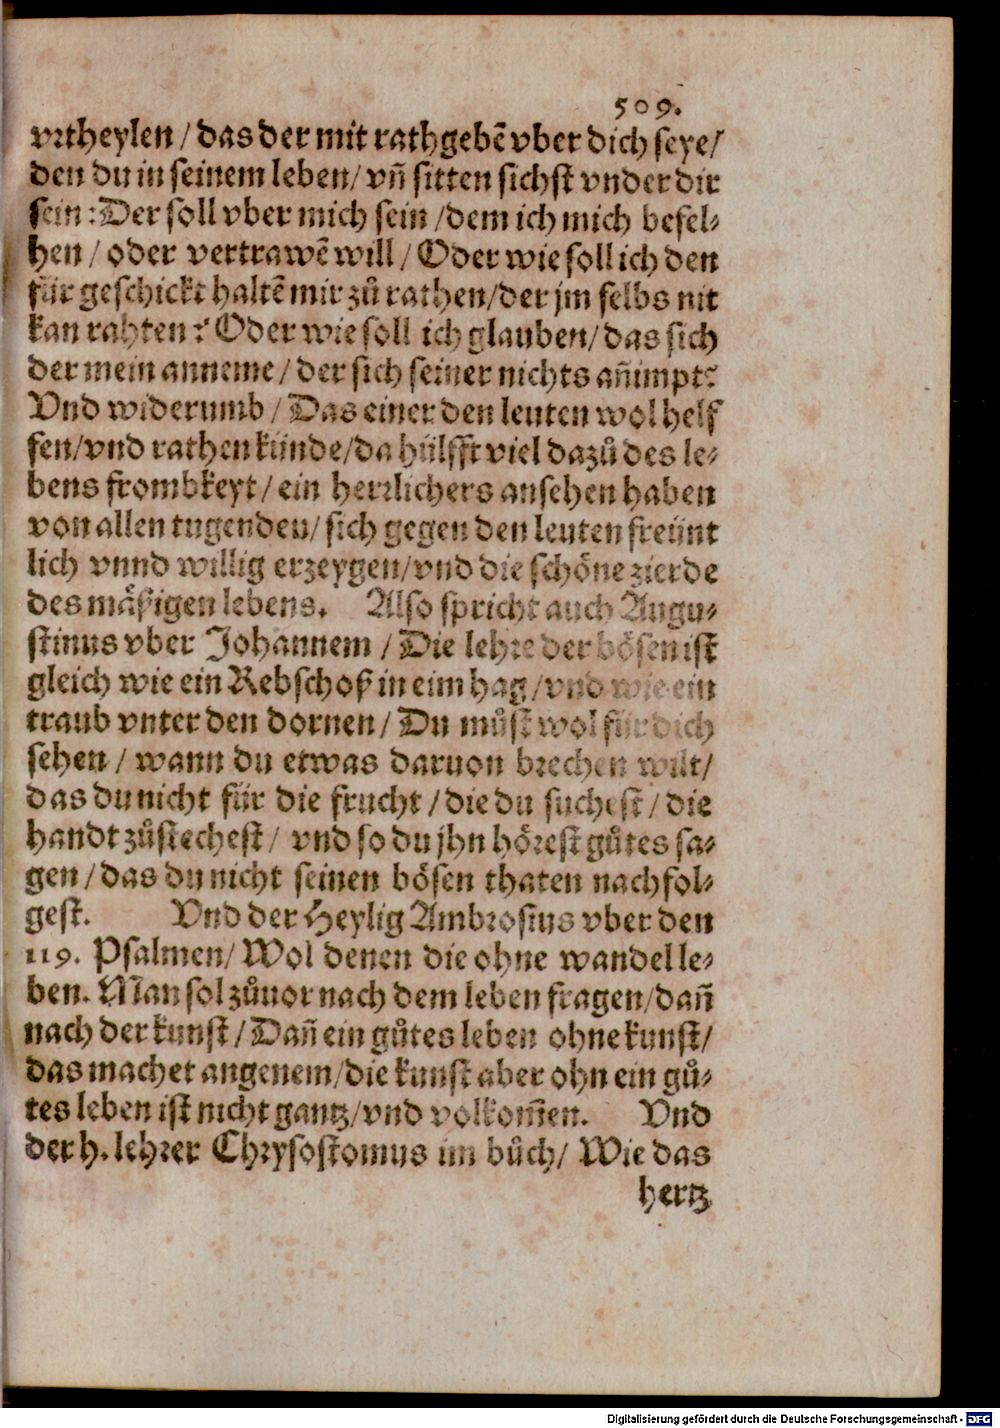 509.
vrtheylen / das der mit rathgebẽ vber dich seye/
den du in seinem leben/ vñ sitten sichst vnder dir
sein: Der soll vber mich sein /dem ich mich befel⸗
hen / oder vertrawẽ will / Oder wie soll ich den
für geschickt haltẽ mir zů rathen/der jm selbs nit
kan rahten? Oder wie soll ich glauben/ das sich
der mein anneme / der sich seiner nichts añimpt?
Vnd widerumb / Das einer den leuten wol helf
fen/vnd rathen künde/da hülfft viel dazů des le⸗
bens frombkeyt / ein herrlichers ansehen haben
von allen tugenden/ sich gegen den leuten freünt
lich vnnd willig erzeygen/vnd die schöne zierde
des mäßigen lebens. Also spricht auch Augu⸗
stinus vber Johannem / Die lehre der bösen ist
gleich wie ein Rebschoß in eim hag /vnd wie ein
traub vnter den dornen / Du můst wol für dich
sehen / wann du etwas daruon brechen wilt/
das du nicht für die frucht / die du suchest / die
handt zůstechest / vnd so du jhn hörest gůtes sa⸗
gen / das du nicht seinen bösen thaten nachfol⸗
gest. Vnd der Heylig Ambrosius vber den
119. Psalmen/ Wol denen die ohne wandel le⸗
ben. Man sol zůuor nach dem leben fragen/dañ
nach der kunst / Dañ ein gůtes leben ohne kunst/
das machet angenem/die kunst aber ohn ein gů⸗
tes leben ist nicht gantz/vnd volkom̃en. Vnd
der h. lehrer Chrysostomus im bůch/ Wie das
hertz
Digitalisierung gefördert durch die Deutsche Forschungsgemeinschaft - DFG